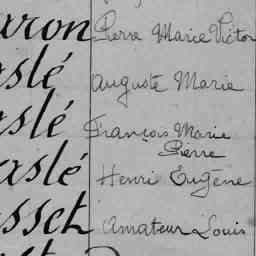 aron Pierre Marie Victor
aslé Auguste Marie
aslé François Marie
Pierre
aslé Henri Eugène
sset Amateur Louis